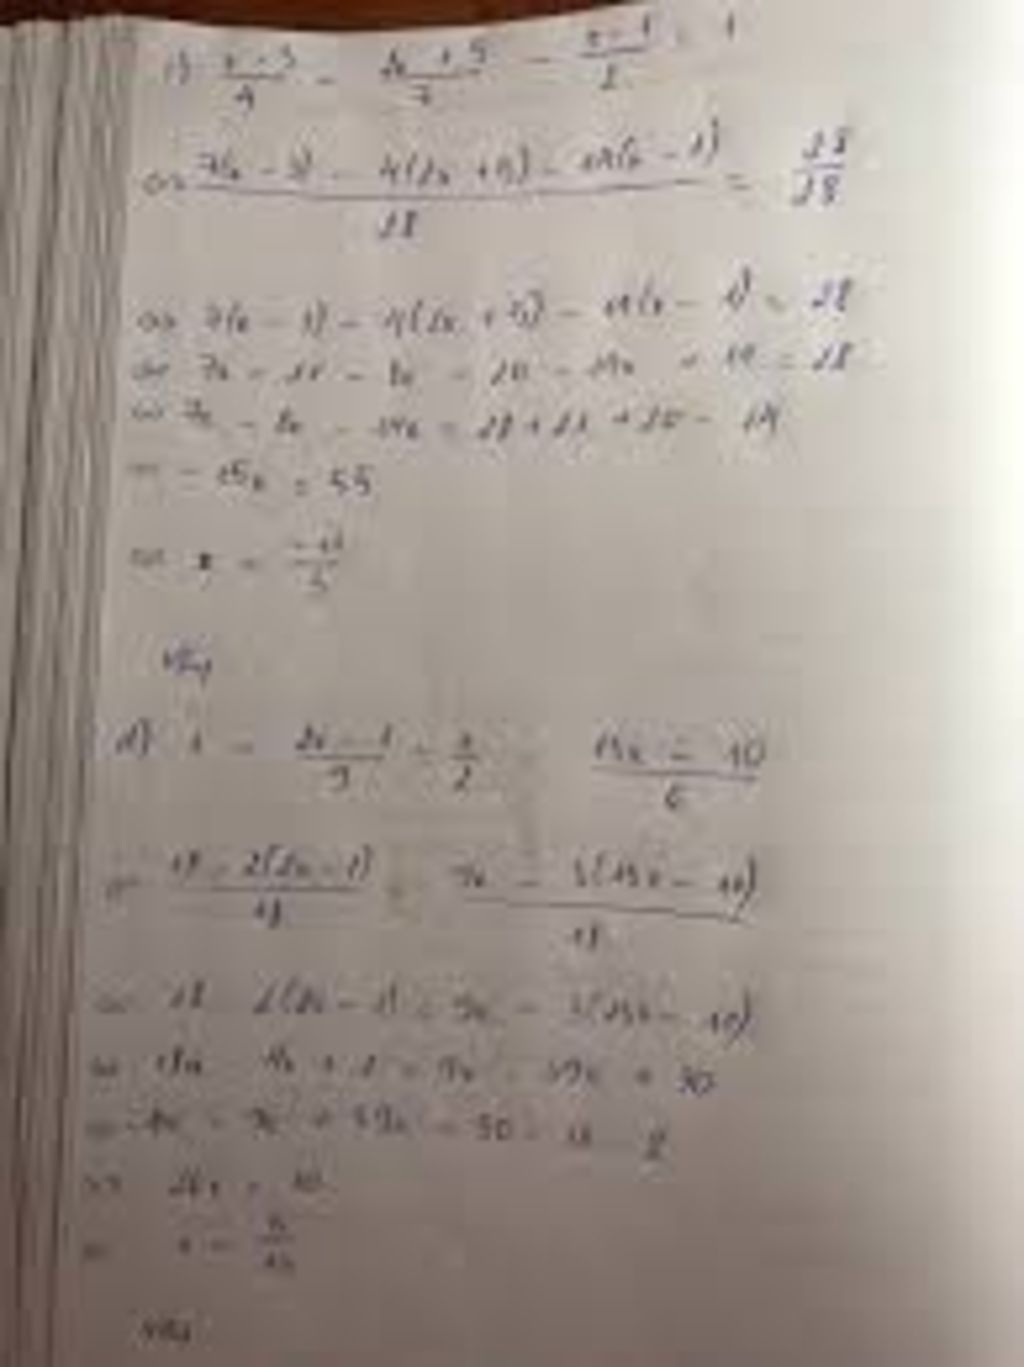 c) x - 3/4 - 2x + 5/7 - x - 1/2 = 1
⇔ 7(x - 3) - 4(2x + 5) - 14(x - 1)/28 = 28/28
⇔ 7(x - 3) - 4(2x + 5) - 14(x - 1) = 28
⇔ 7x - 21 - 8x - 20 - 14x + 14 = 28
⇔ 7x - 8x - 14x = 28 + 21 + 20 - 14
⇔ - 15x = 55
⇔ x = -11/3
Vậy
d) - 2x - 1/9 = x/2 - 13x - 10/6
⇔ 18 - 2(2x - 1)/18 = 9x - 3(13x - 10)/18
⇔ 18 - 2(2x - 1) = 9x - 3(13x - 10)
+ 2 = 9x - 39x + 30
⇔ -4x - 9x + 39x = 30 - 18 - 2
⇔ 26x = 10
⇔ x =
Vậy